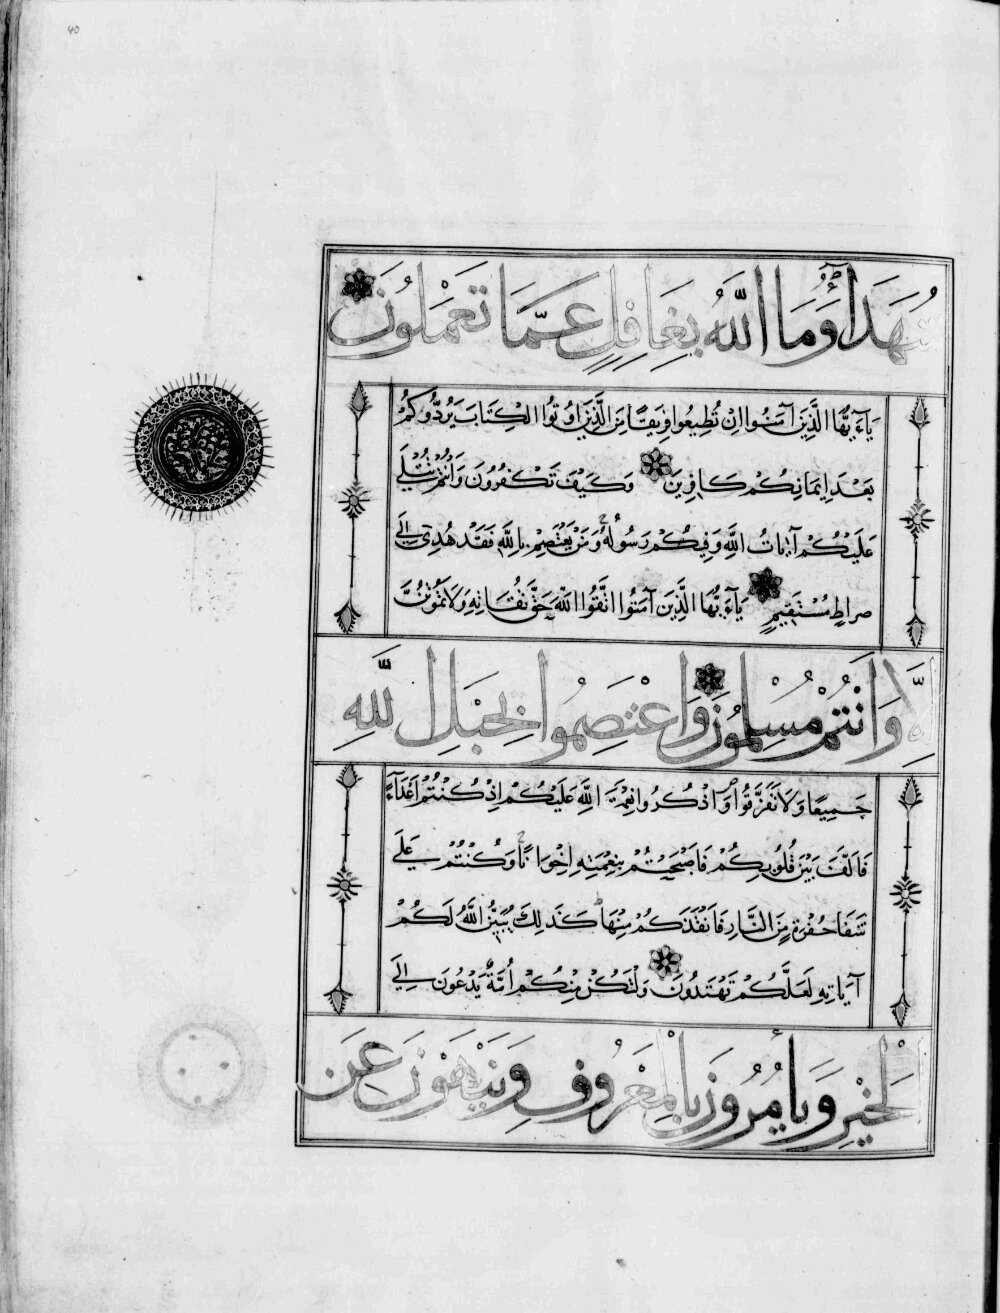 40
شُهَدَآءُ وَمَا اللَّهُ بِغَافِلٍ عَمَّا تَعْمَلُونَ
يَآءَيُّهَا الَّذِينَ آمَنُوا اِنْ تُطِيعُوا فَرِيقًا مِنَ الَّذِينَ اُوتُوا الْكِتَابَ يَرُدُّوكُمْ
بَعْدَ اِيمَانِكُمْ كَافِرِينَ وَكَيْفَ تَكْفُرُونَ وَاَنْتُمْ تُتْلَى
عَلَيْكُمْ آيَاتُ اللَّهِ وَفِيكُمْ رَسُولُهُ وَمَنْ يَعْتَصِمْ بِاللَّهِ فَقَدْ هُدِىَ اِلَى
صِرَاطٍ مُسْتَقِيمٍ يَآءَيُّهَا الَّذِينَ آمَنُوا اتَّقُوا اللَّهَ حَقَّ تُقَاتِهِ وَلَا تَمُوتُنَّ
اِلَّا وَاَنْتُمْ مُسْلِمُونَ وَاعْتَصِمُوا بِحَبْلِ اللَّهِ
جَمِيعًا وَلَا تَفَرَّقُوا وَاذْكُرُوا نِعْمَةَ اللَّهِ عَلَيْكُمْ اِذْ كُنْتُمْ اَعْدَآءً
فَاَلَّفَ بَيْنَ قُلُوبِكُمْ فَاَصْبَحْتُمْ بِنِعْمَتِهِ اِخْوَانًا وَكُنْتُمْ عَلَى
شَفَا حُفْرَةٍ مِنَ النَّارِ فَاَنْقَذَكُمْ مِنْهَا كَذَلِكَ يُبَيِّنُ اللَّهُ لَكُمْ
آيَاتِهِ لَعَلَّكُمْ تَهْتَدُونَ وَلْتَكُنْ مِنْكُمْ اُمَّةٌ يَدْعُونَ اِلَى
الْخَيْرِ وَيَأْمُرُونَ بِالْمَعْرُوفِ وَيَنْهَوْنَ عَنِ